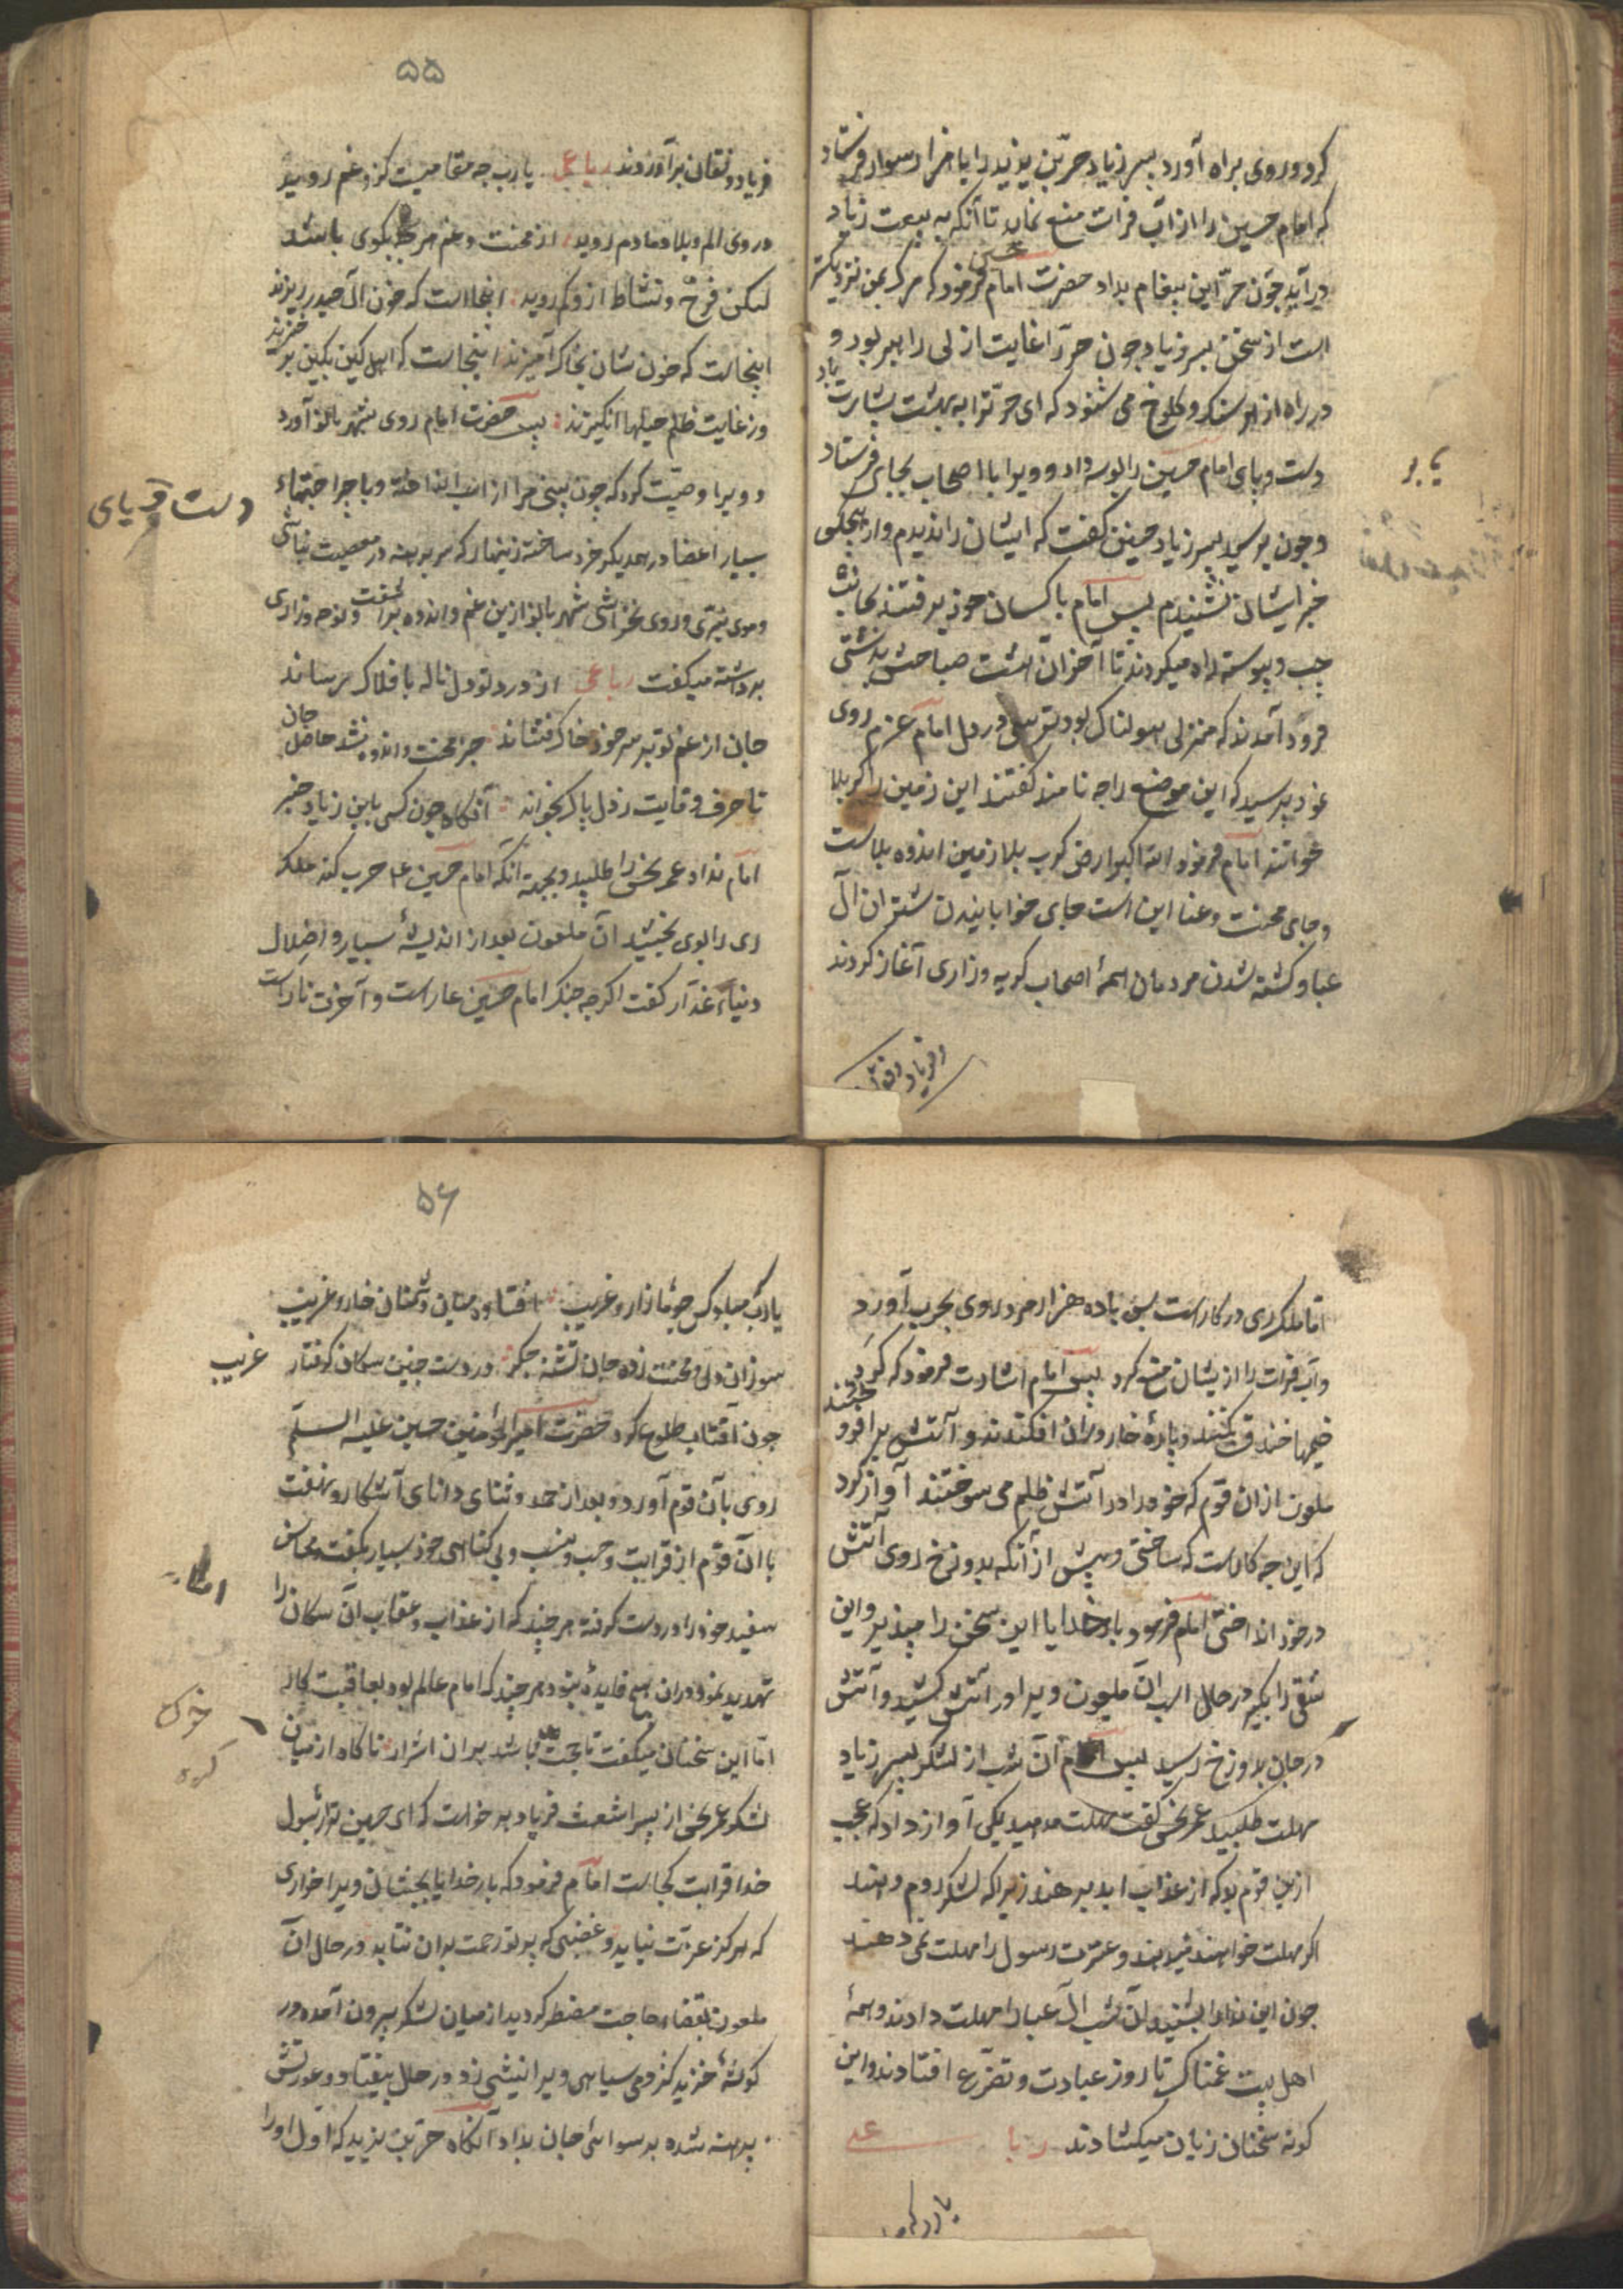 کرد و روی براه آورد پسر زیاد حرّ بن یزید را با هزار سوار فرستاد
که امام حسین را از آب فرات منع نماید تا آنکه به بیعت زیاد
درآید چون حرّ این پیغام بداد حضرت امام حسین فرمود که مرک بمن نزدیکتر
است از سخن پسر زیاد چون حرّ را غایت ازلی راهبر بود و
در راه از هر سنک و کلوخ می شنود که ای حرّ ترا به بهشت بشارت باد
دست و پای امام حسین را بوسه داد و ویرا با اصحاب بجایی فرستاد
و چون برسید پسر زیاد چنین کفت که ایشان را ندیدم و از هیچکس
خبر ایشان نشنیدم پس امام با کسان خود برفتند بجانب
چپ و پیوسته راه میکردند تا آخر آن هشت صباحش بدشتی
فرود آمدند که منزلی هولناک بود ترسی در دل امام عزم روی
نمود پرسید که این موضع را چه نامند کفتند این زمین را کربلا
خوانند امام فرمود الله اکبر ارض کرب بلا زمین اندوه بلاست
و جای محنت و عنا این است جای خوابانیدن شتران آل
عبا و کشته شدن مردمان همهٔ اصحاب کریه و زاری آغاز کردند
و فریاد و فغان
یابر
۵۵
فریاد و فغان برآوردند رباعی یا رب چه مقامیست کزو غم روید
در وی الم و بلا دمادم روید از محنت و غم هر چه بکوی باشد
لیکن فرح و نشاط ازو کم روید اینجااست که خون آل حیدر ریزند
اینجاست که خون شان بخاک آمیزند اینجاست که اهل کین بکین بر خیزند
وز غایت ظلم حیلها انکیزند پس حضرت امام روی بشهر بانو آورد
و ویرا وصیّت کرد که چون بینی مرا از اسب انداخته و با جراحتهاء
بسیار اعضا در همدیکر خرد ساخته زینهار که سر برهنه در مصیبت نباشی
و موی نبرّی و روی نخراشی شهر بانو ازین غم و اندوه برآشفت و نوحه و زاری
برداشته میکفت رباعی از درد تو دل ناله بافلاک رساند
جان از غم تو بر سر خود خاک فشاند جز محنت و اندوه نشد حاصل جان
تا حرف وفایت ز دل پاک بخواند آنکاه چون کسی بابن زیاد خبر
امام نداد عمر نحس را طلبید و بجهة آنکه امام حسین ع حرب کند ملک
ری را بوی بخشید آن ملعون بعد از اندیشهٔ بسیار و اضلال
دنیاء غدّار کفت اکرچه جنک امام حسین عار است و آخرت نار است
دست و پای
اما ملک ری در کار است پس با ده هزار مرد روی بحرب آورد
و آب فرات را از یشان منع کرد پس امام اشارت فرمود که کرد
خیمها خندق کنند و پارهٔ خار در آن افکندند و آتش برافروختند
ملعون از ان قوم که خود را در آتش ظلم می سوختند آواز کرد
که این چه کاراست که ساختی و پیش از آنکه بدوزخ روی آتش
در خود انداختی امام فرمود بار خدایا این سخن را بپذیر و این
شقی را بکیر در حال اسب آن ملعون ویرا در آتش کشید و آتش
در جان بدوزخ رسید پس امام آن شب از لشکر پسر زیاد
مهلت طلبید عمر نحس کفت مهلت مدهید یکی آواز داد که عجب
ازین قوم بد که از عذاب ابد پرهیزند زیرا که لشکر روم و هند
اکر مهلت خواهند میدهند و عترت رسول را مهلت نمی دهند
چون این ندا را بشنید آن شب آل عبا را مهلت دادند و همهٔ
اهل بیت غمناک تا روز عبادت و تضرّع افتادند و این
کونه سخنان زبان میکشادند رباعی
یا رب که
۵۶
یا رب که مبا کس چو ما زار و غریب افتاده میان دشمنان خار و غریب
سوزان دل و محنت زده جان تشنه جکر در دست چنین سکان کرفتار غریب
چون آفتاب طلوع کرد حضرت امیر المؤمنین حسین علیه السلم
روی بآن قوم آورد و بعد از حمد و ثنای دانای آشکار و نهفت
با آن قوم از قرابت و حسب و نسب و بی کناهی خود بسیار بکفت محاسن
سفید خود را در دست کرفته هر چند که از عذاب و عقاب آن سکان را
تهدید نمود در ان هیچ فایده نبود هر چند که امام عالم بود بعاقبت کار
امّا این سخنان میکفت تا حجت باشد بر ان اشرار ناکاه از میان
لشکر عمر نحس از پسر اشعث فریاد بر خواست که ای حسین ترا رسول
خدا قرابت کجاست امام فرمود که بار خدایا بچشان ویرا خواری
که هرکز عزت نیاید و غضبی که پرتو رحمت بران نتابد در حال آن
ملعون بقضاء حاجت مضطر کردید از میان لشکر بیرون آمده در
کوشهٔ خزید کژدمی سیاهی ویرا نیشی زد در حال بیفتاد و عورتش
برهنه شده برسوائی جان بداد آنکاه حرّ بن یزید که اول او را
غریب